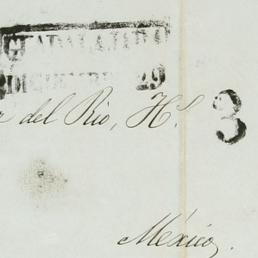 GUADALAJARA
DICIEMBRE 29
del Rio, H.s 3
México.